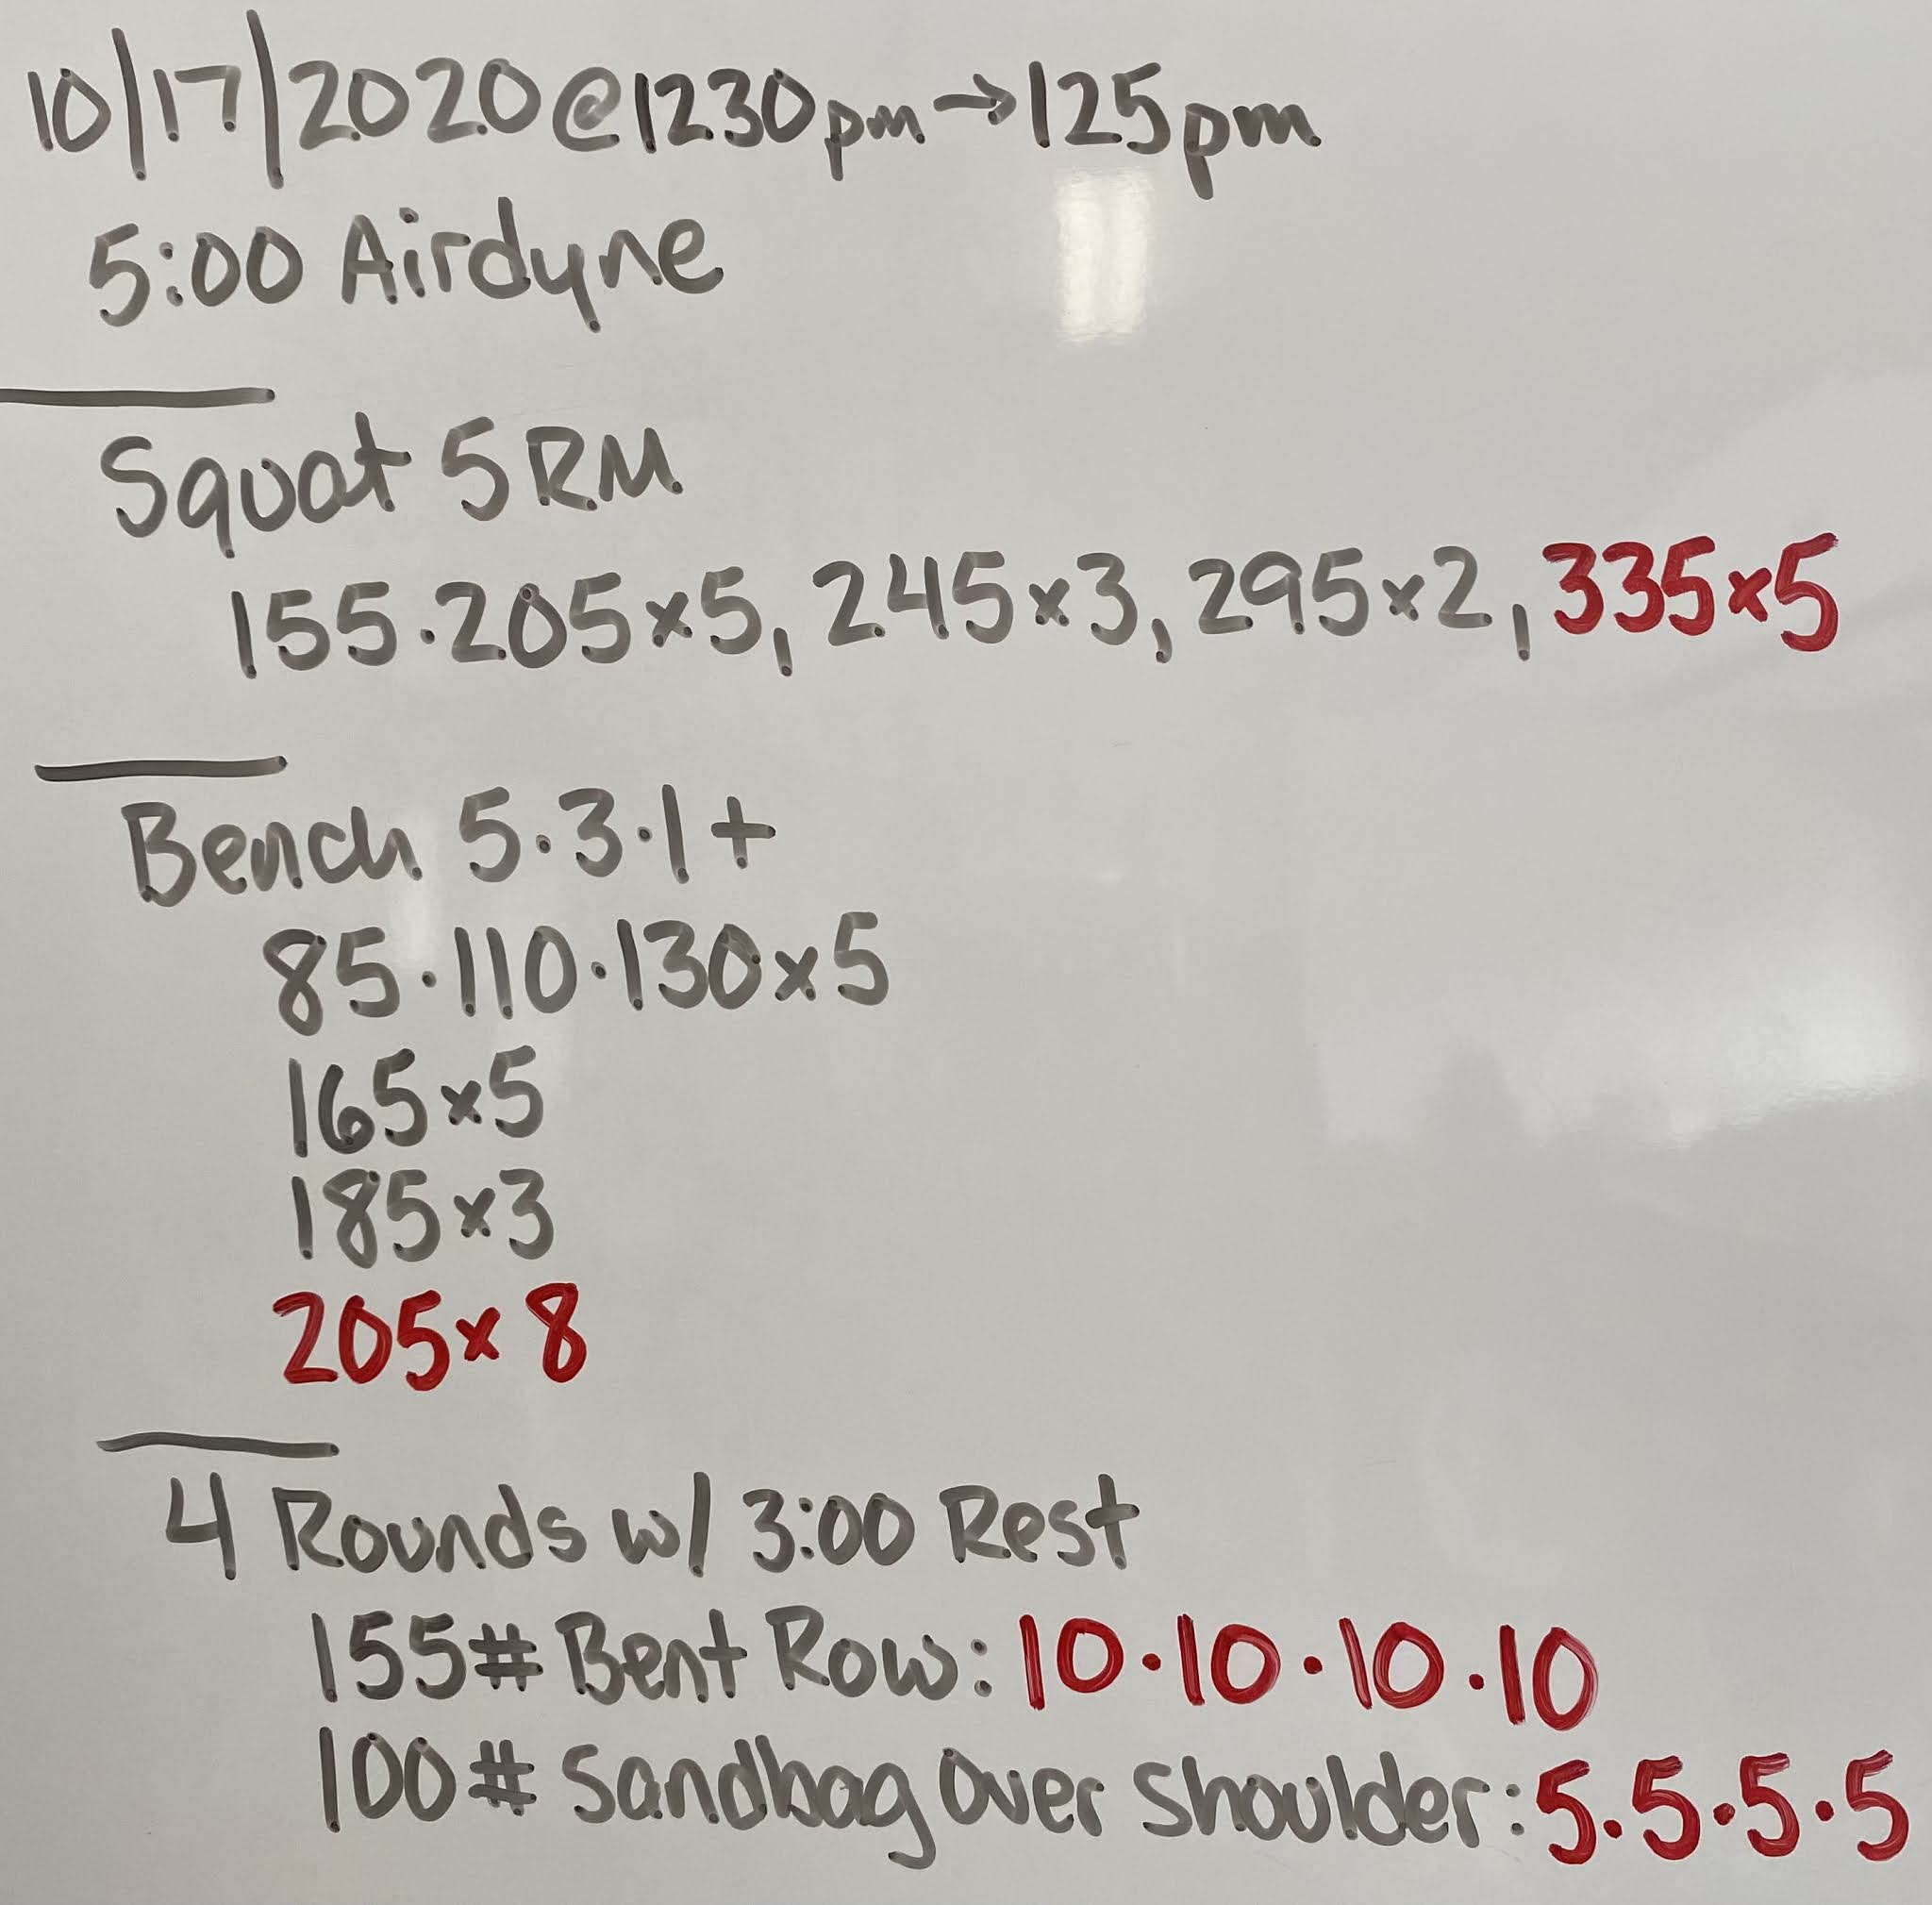 10/17/2020@1230pm→125pm
5:00 Airdyne
Squat 5RM
155·205x5, 245x3, 295x2, 335x5
Bench 5·3·1+
85·110·130x5
165x5
185x3
205x8
4 Rounds w/ 3:00 Rest
155# Bent Row: 10·10·10·10
100# Sandbag Over Shoulder: 5·5·5·5